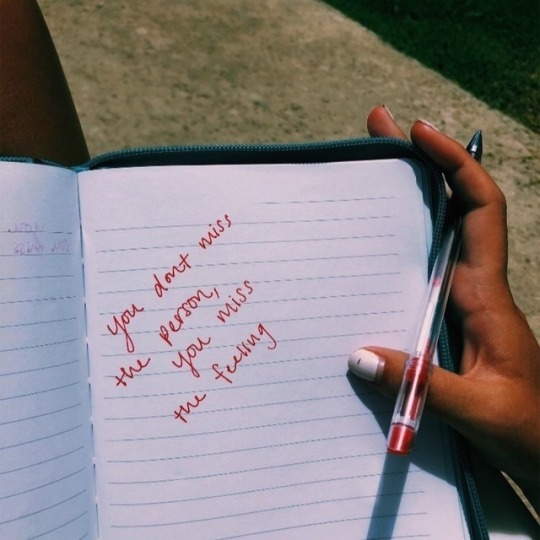 you dont miss
the person,
you miss
the feeling